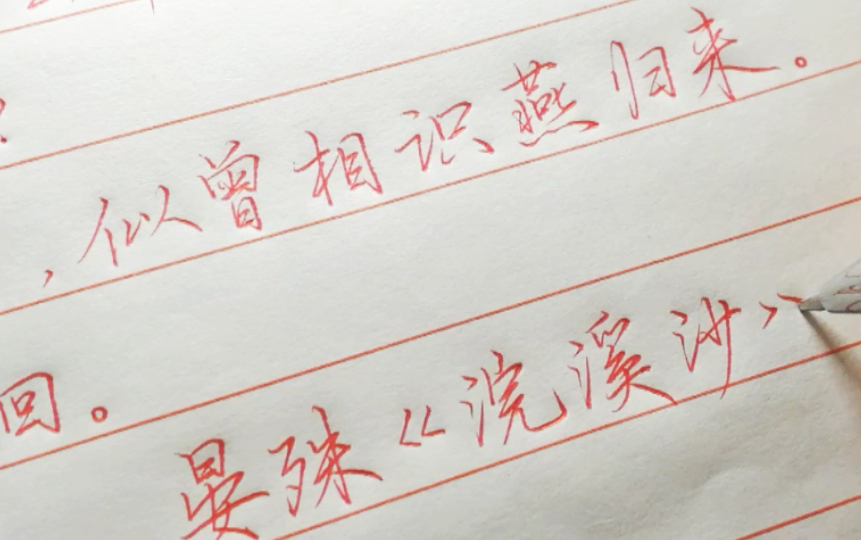 ，似曾相识燕归来。
回。
晏殊《浣溪沙》